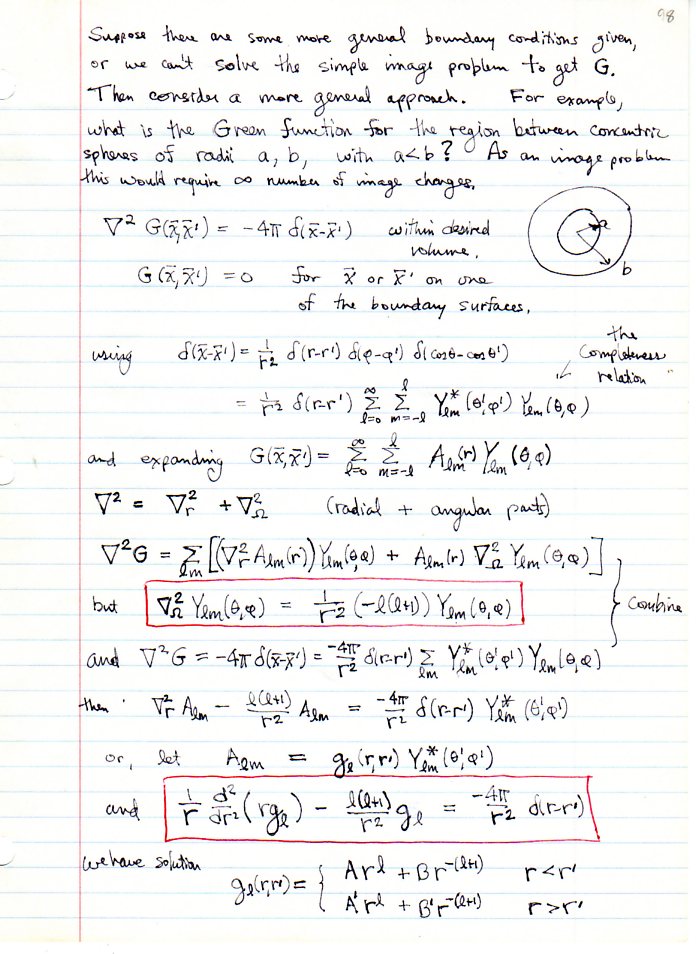 98
Suppose there are some more general boundary conditions given,
or we can't solve the simple image problem to get G.
Then consider a more general approach. For example,
what is the Green function for the region between concentric
spheres of radii a, b, with a<b? As an image problem
this would require ∞ number of image charges.
∇² G(x̄,x̄') = -4π δ(x̄-x̄') within desired
volume.
a
b
G(x̄,x̄') = 0 for x̄ or x̄' on one
of the boundary surfaces.
using δ(x̄-x̄') = 1/r² δ(r-r') δ(φ-φ') δ(cosθ-cosθ')
the
completeness
relation
= 1/r² δ(r-r') Σ_{l=0}^{∞} Σ_{m=-l}^{l} Y*_{lm}(θ',φ') Y_{lm}(θ,φ)
and expanding G(x̄,x̄') = Σ_{l=0}^{∞} Σ_{m=-l}^{l} A_{lm}(r) Y_{lm}(θ,φ)
∇² = ∇²_r + ∇²_Ω (radial + angular parts)
∇²G = Σ_{lm} [(∇²_r A_{lm}(r)) Y_{lm}(θ,φ) + A_{lm}(r) ∇²_Ω Y_{lm}(θ,φ)]
but ∇²_Ω Y_{lm}(θ,φ) = 1/r² (-l(l+1)) Y_{lm}(θ,φ)
combine
and ∇²G = -4π δ(x̄-x̄') = -4π/r² δ(r-r') Σ_{lm} Y*_{lm}(θ',φ') Y_{lm}(θ,φ)
then ∇²_r A_{lm} - l(l+1)/r² A_{lm} = -4π/r² δ(r-r') Y*_{lm}(θ',φ')
or, let A_{lm} = g_l(r,r') Y*_{lm}(θ',φ')
and 1/r d²/dr² (r g_l) - l(l+1)/r² g_l = -4π/r² δ(r-r')
we have solution
g_l(r,r') = { A r^l + B r^{-(l+1)} r<r'
A' r^l + B' r^{-(l+1)} r>r'